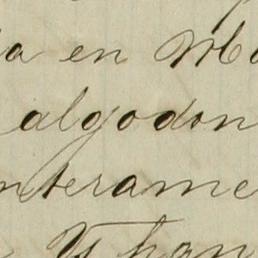 a en Ma
algodon
nterame
Y han